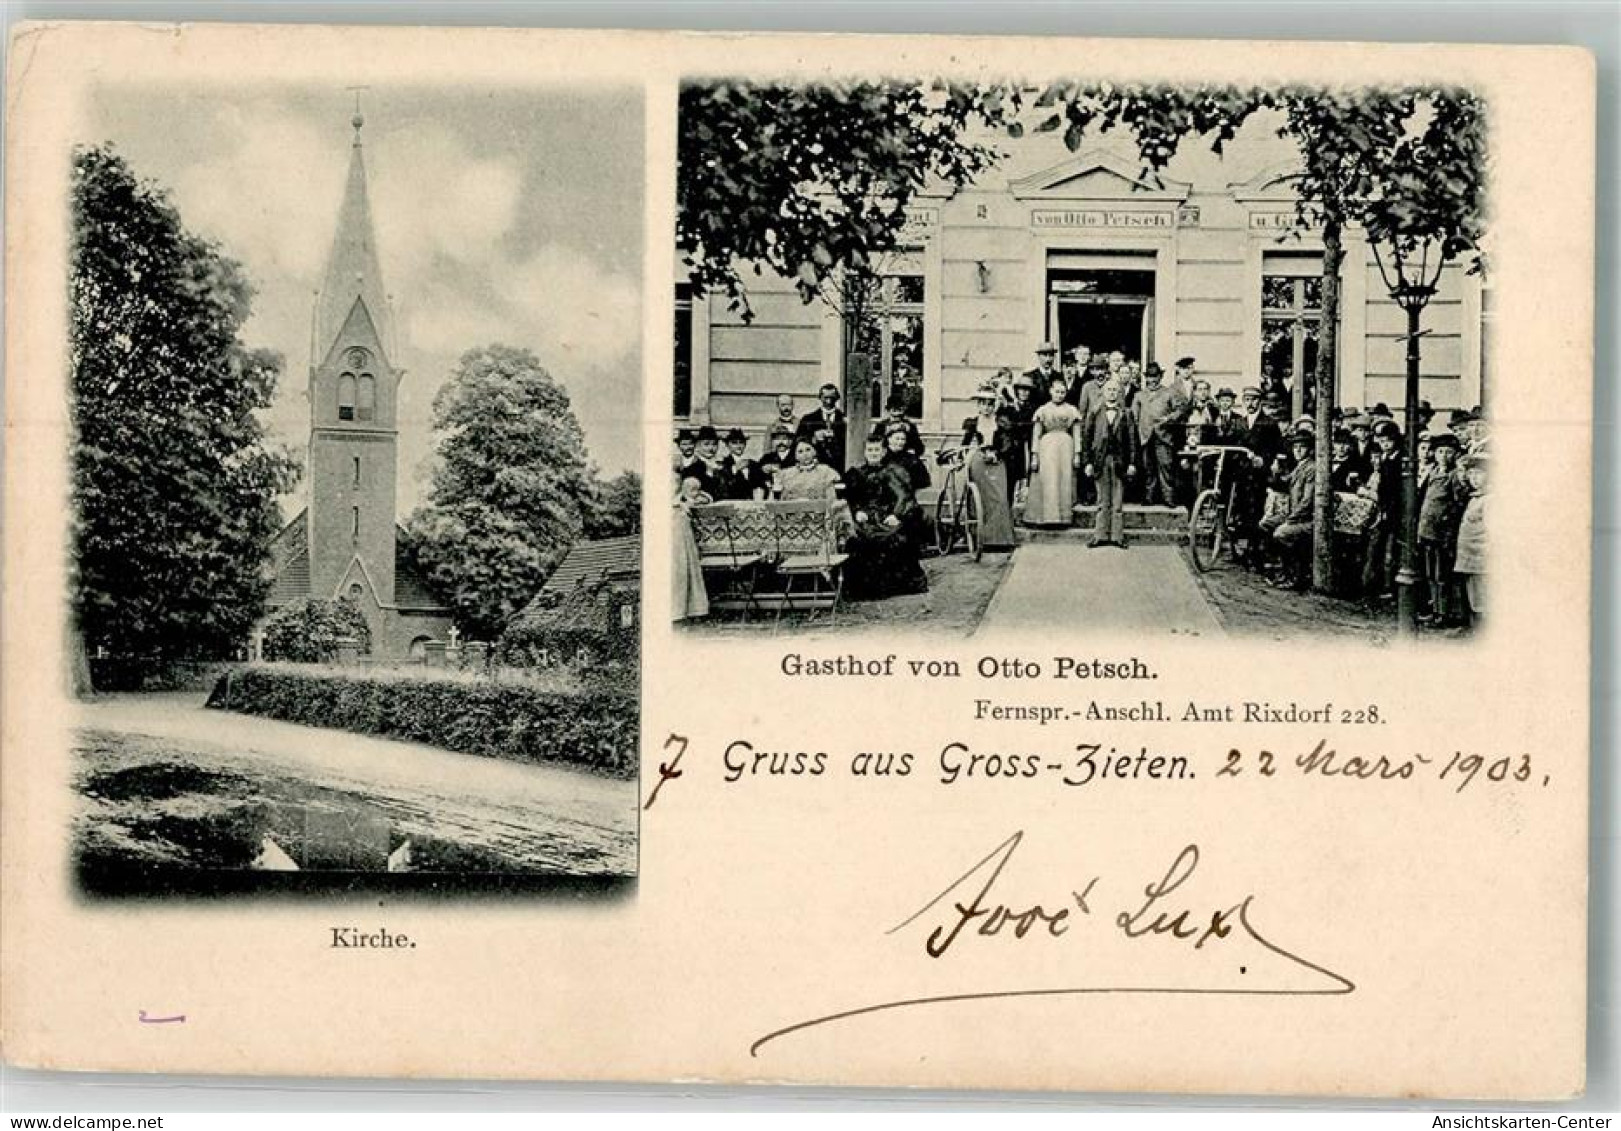 von Otto Petsch
Gasthof von Otto Petsch.
Fernspr.-Anschl. Amt Rixdorf 228.
7 Gruss aus Gross-Zieten. 22 Mars 1903.
José Lux
Kirche.
Ansichtskarten-Center